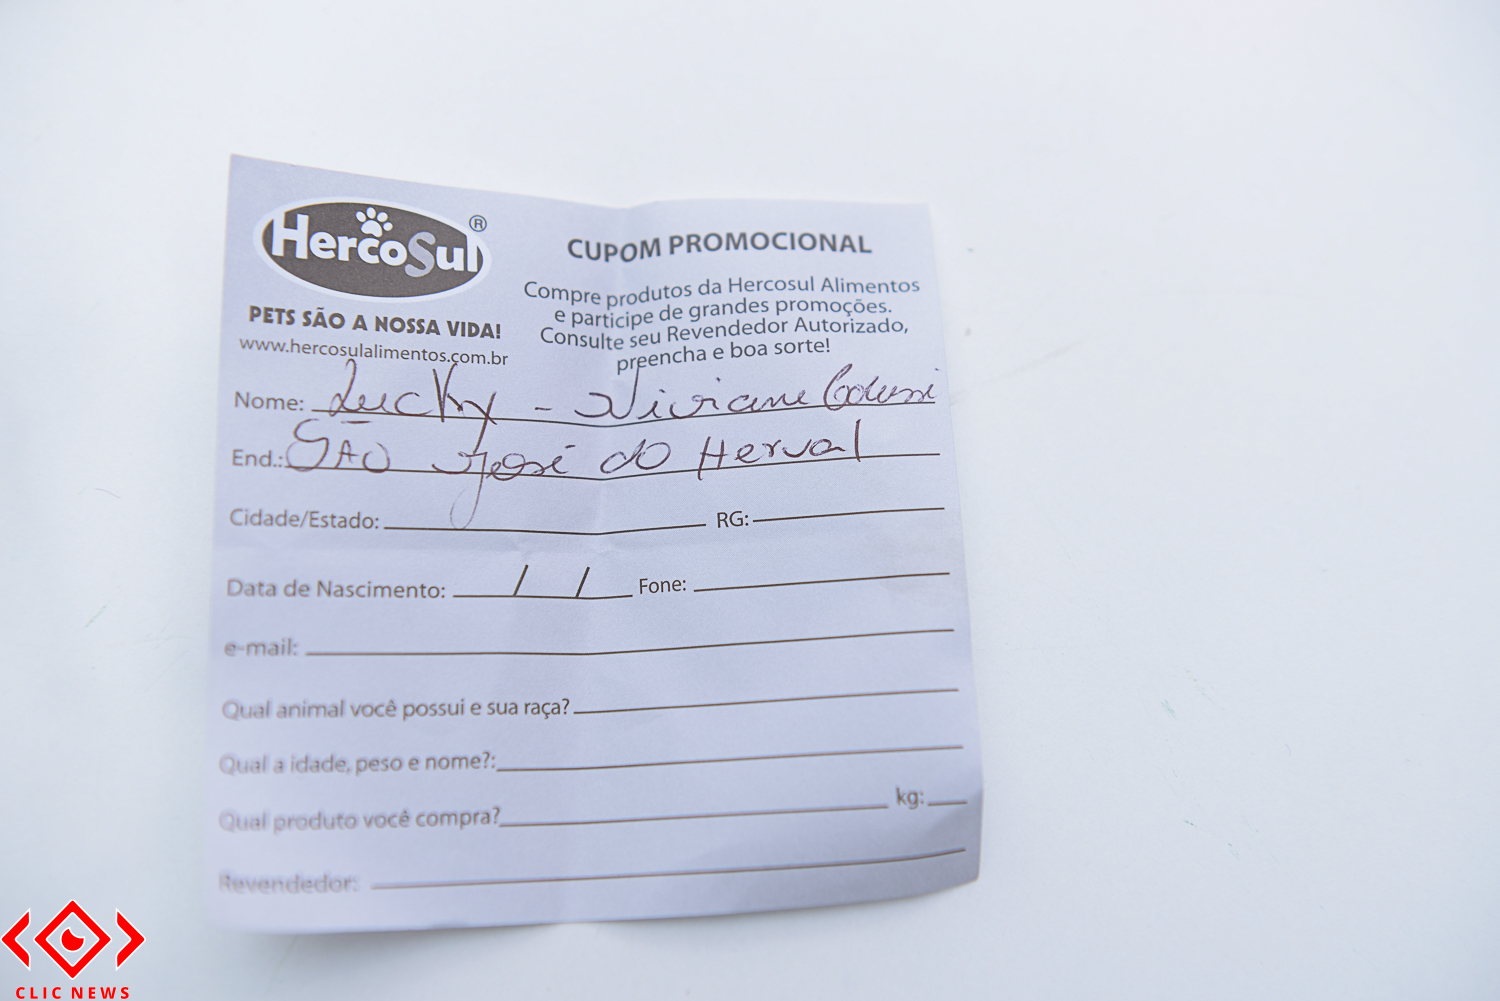 HercoSul ®
PETS SÃO A NOSSA VIDA!
www.hercosulalimentos.com.br
CUPOM PROMOCIONAL
Compre produtos da Hercosul Alimentos
e participe de grandes promoções.
Consulte seu Revendedor Autorizado,
preencha e boa sorte!
Nome: Lucky - Viviane
End.: São José do Herval
Cidade/Estado: RG:
Data de Nascimento: / / Fone:
e-mail:
Qual animal você possui e sua raça?
Qual a idade, peso e nome?:
Qual produto você compra? kg:
Revendedor:
CLIC NEWS